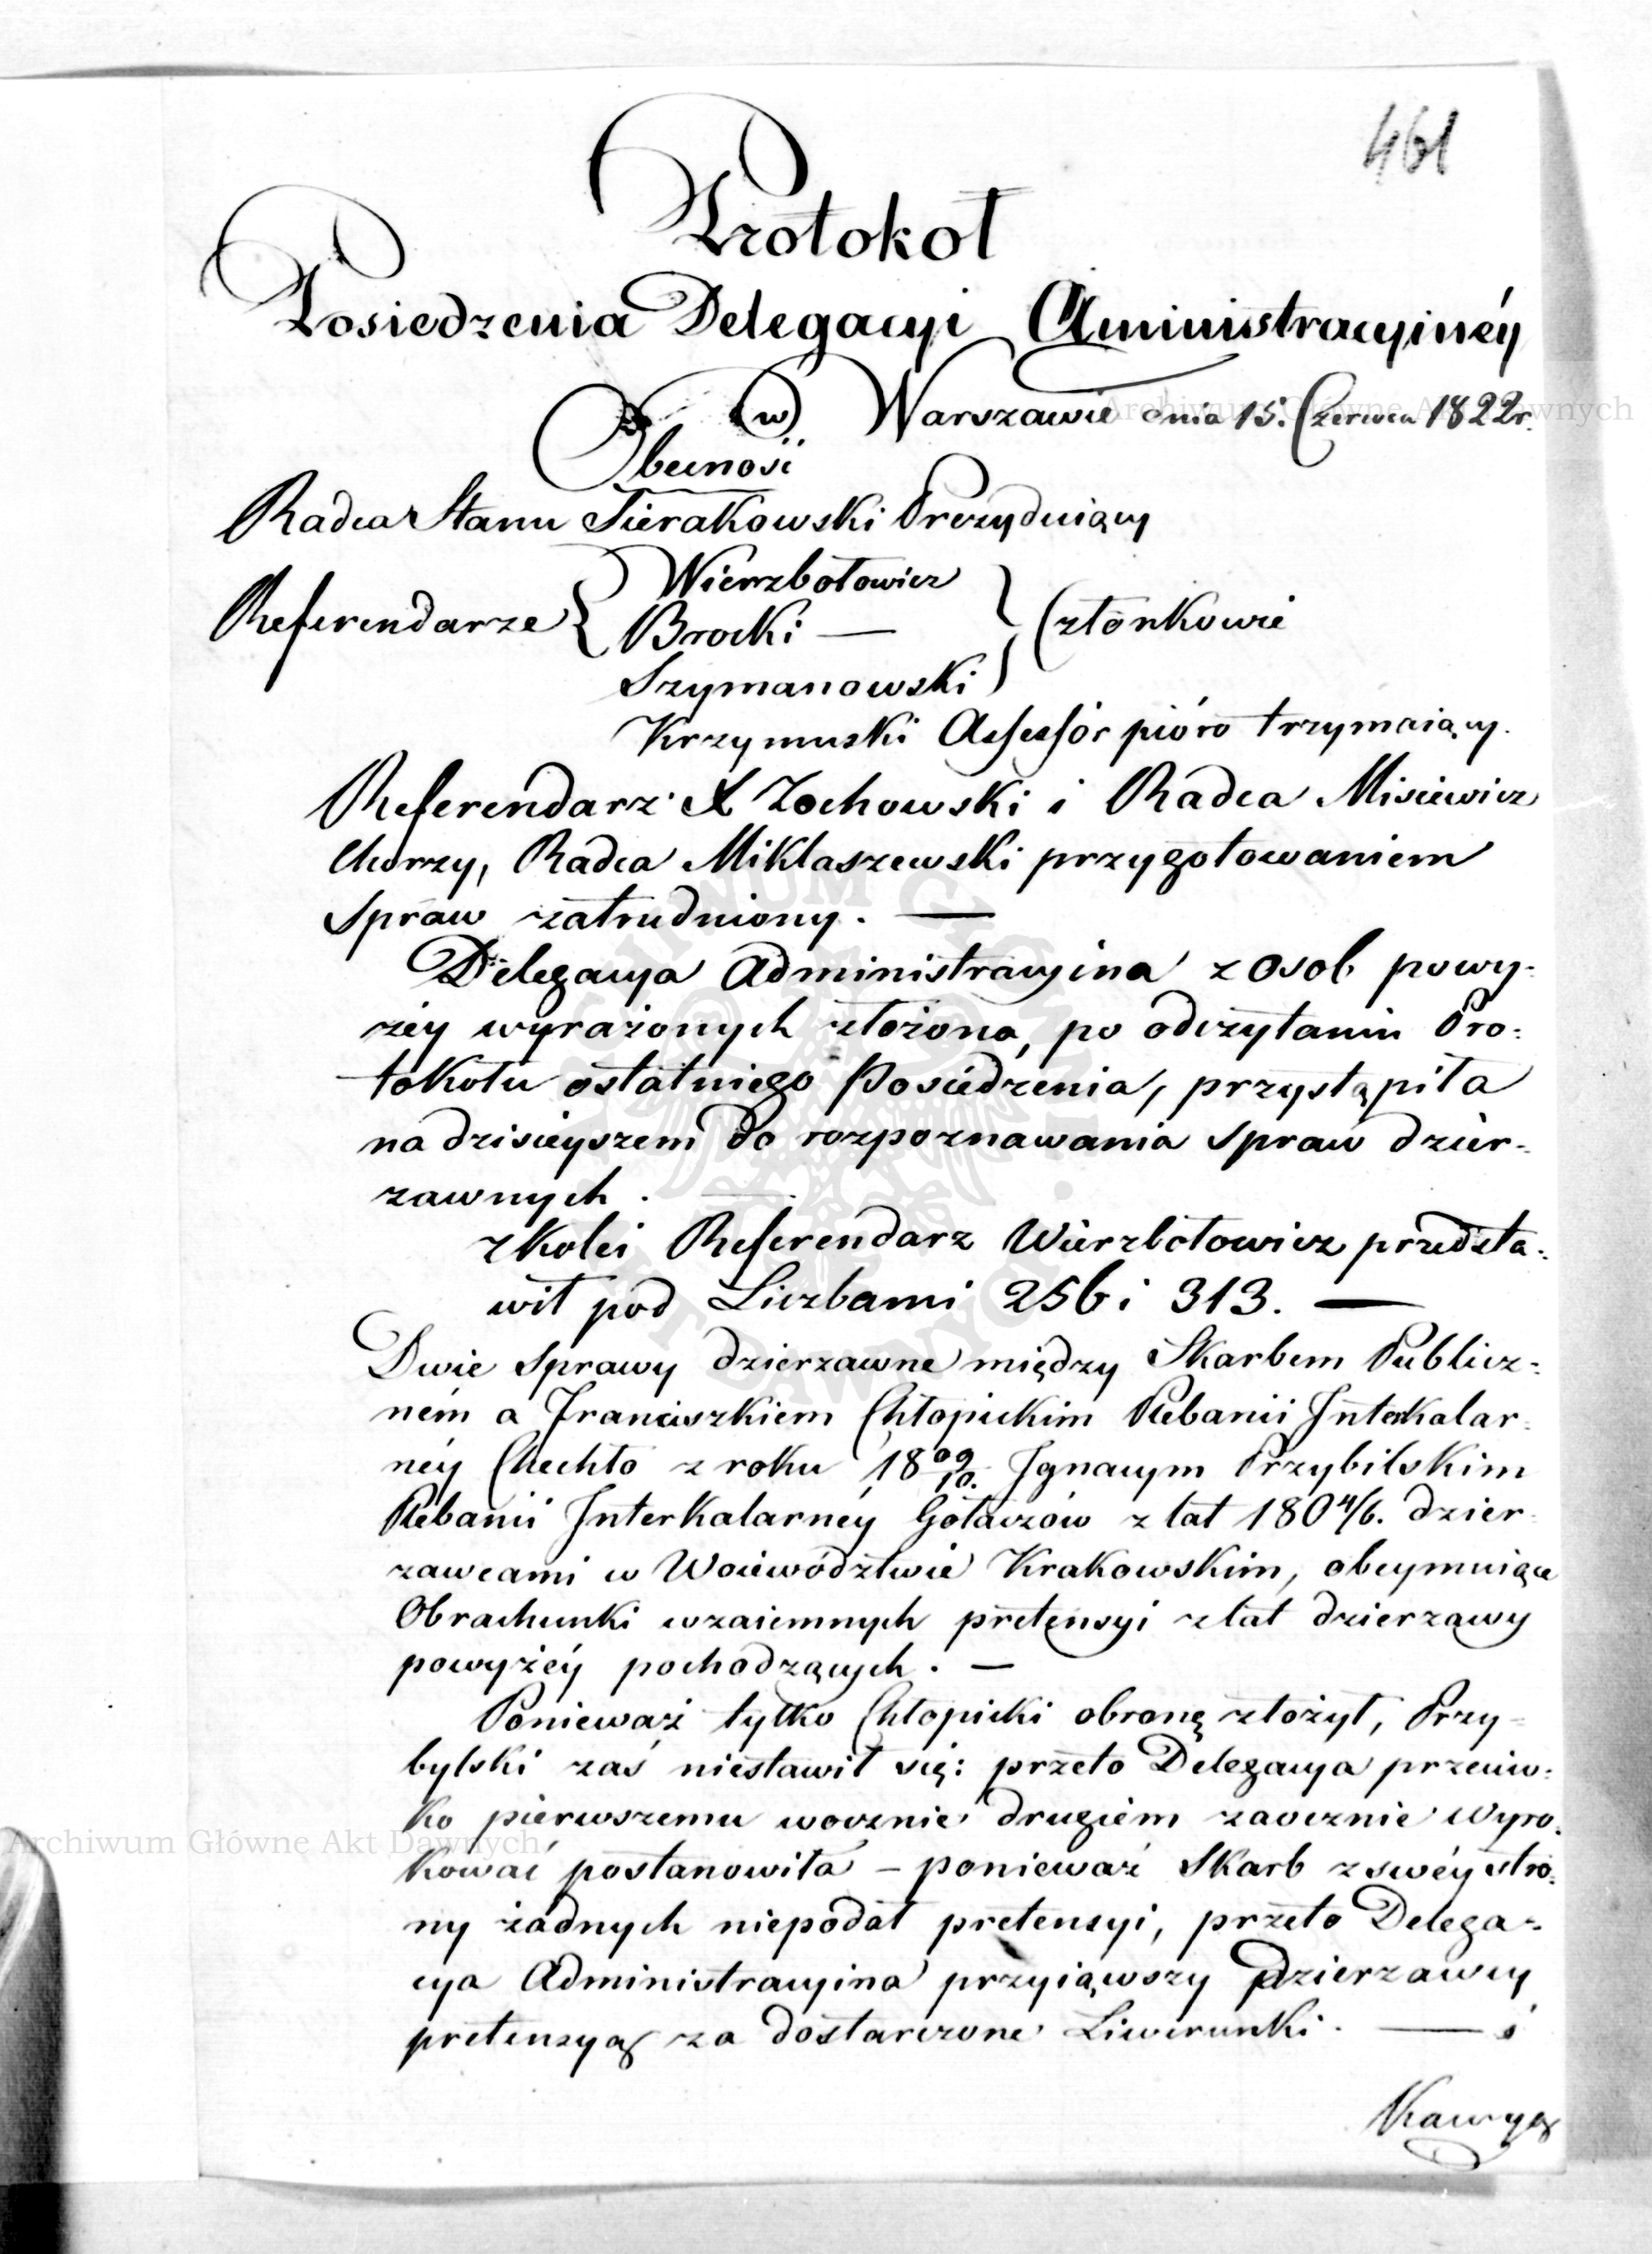 461
Protokoł
Posiedzenia Delegacyi Aministracyinéy
w Warszawie dnia 15. Czerwca 1822 r.
Obecności
Radca Stanu Sierakowski Prezyduiący
Wierzbołowicz
Referendarze Brocki — Członkowie
Szymanowski
Krzymuski Assessór pióro trzymaiący.
Referendarz X Zochowski i Radca Misiewicz
Chorzy, Radca Miklaszewski przygotowaniem
Spraw zatrudniony. —
Delegacya Administracyina z osob powy-
zey wyrażonych złożona, po odczytaniu Pro-
tokołu ostatniego Posiedzenia, przystąpiła
na dzisieyszem do rozpoznawania spraw dzier-
zawnych. —
z Kolei Referendarz Wierzbołowicz przedsta-
wił pod Liczbami 256 i 313. —
Dwie sprawy dzierzawne między Skarbem Publicz-
ném a Franciszkiem Chłopickim Plebanii Interkalar-
néy Chechło z roku 18 09/10. Ignacym Przybilskim
Plebanii Interkalarnéy Gołaczów z lat 180 4/6. dzier-
zawcami w Woiewództwie Krakowskim, obeymuiące
Obrachunki wzaiemnych pretensyi z lat dzierzawy
powyżéy pochodzących. —
Ponieważ tylko Chłopicki obronę złożył, Przy-
bylski zaś niestawił się: przeto Delegacya przeciw-
ko pierwszemu wocznie drugiém zaocznie wyro-
kować postanowiła – ponieważ Skarb z swéy stro-
ny żadnych niepodał pretensyi, przeto Delega-
cya Administracyina przyiąwszy Dzierzawcy
pretensyą za dostarczone Liwerunki. — i
Kawcyą
Archiwum Główne Akt Dawnych
Archiwum Główne Akt Dawnych
ARCHIWUM GŁÓWNE AKT DAWNYCH